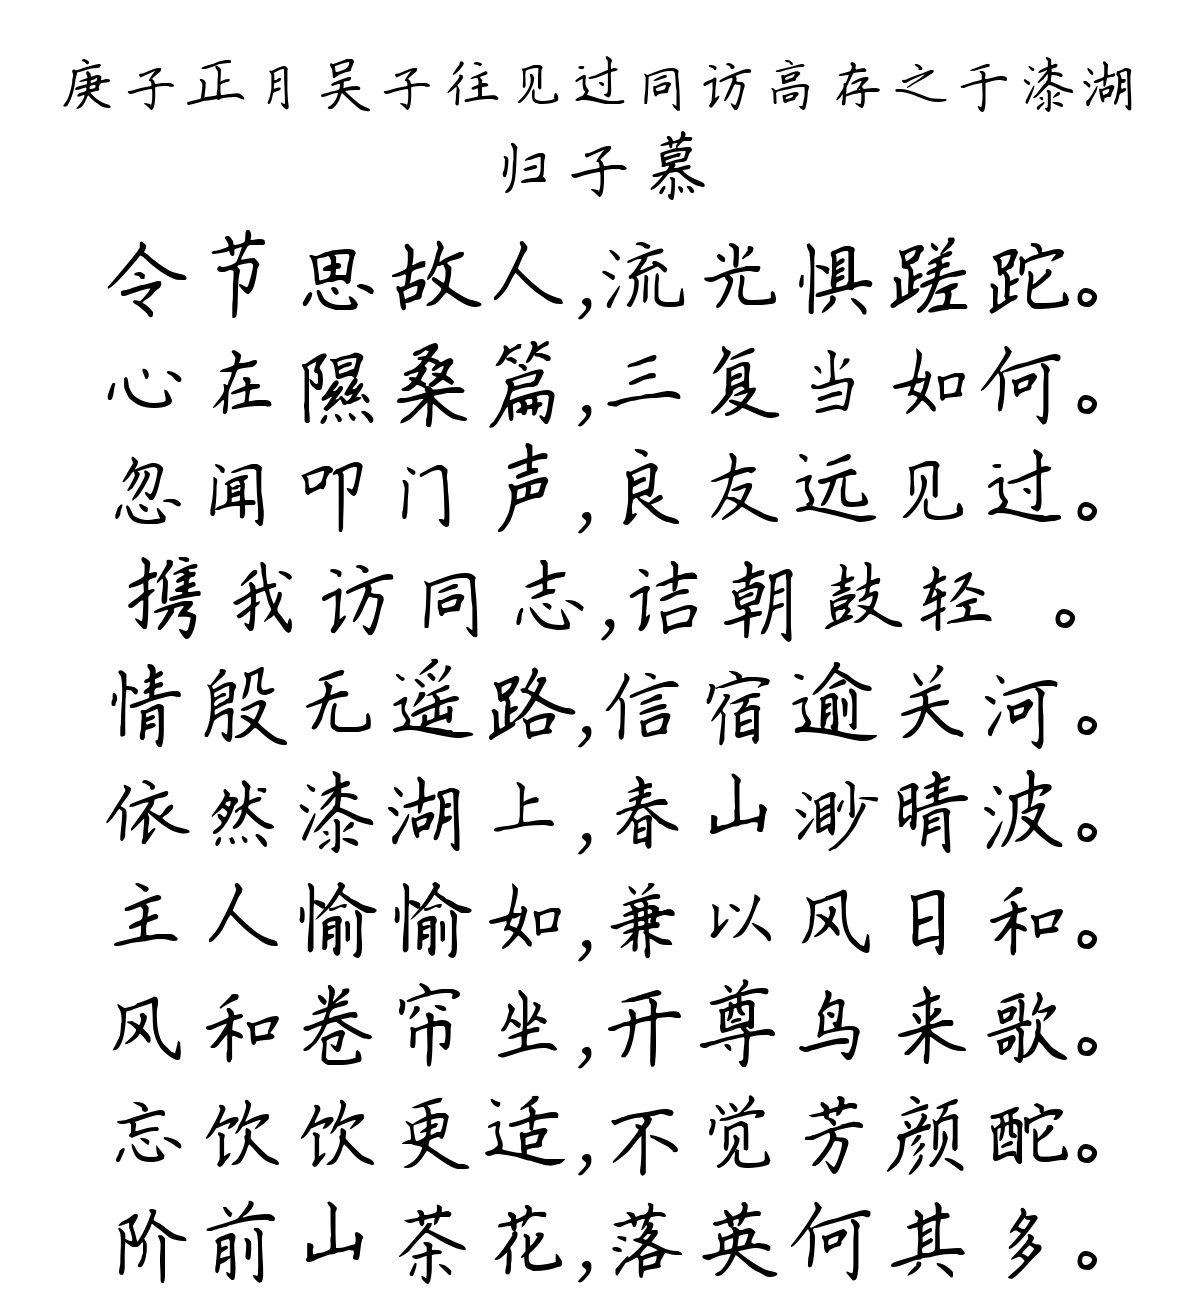 庚子正月吴子往见过同访高存之于漆湖
归子慕
令节思故人,流光惧蹉跎。
心在隰桑篇,三复当如何。
忽闻叩门声,良友远见过。
携我访同志,诘朝鼓轻 。
情殷无遥路,信宿逾关河。
依然漆湖上,春山渺晴波。
主人愉愉如,兼以风日和。
风和卷帘坐,开尊鸟来歌。
忘饮饮更适,不觉芳颜酡。
阶前山茶花,落英何其多。